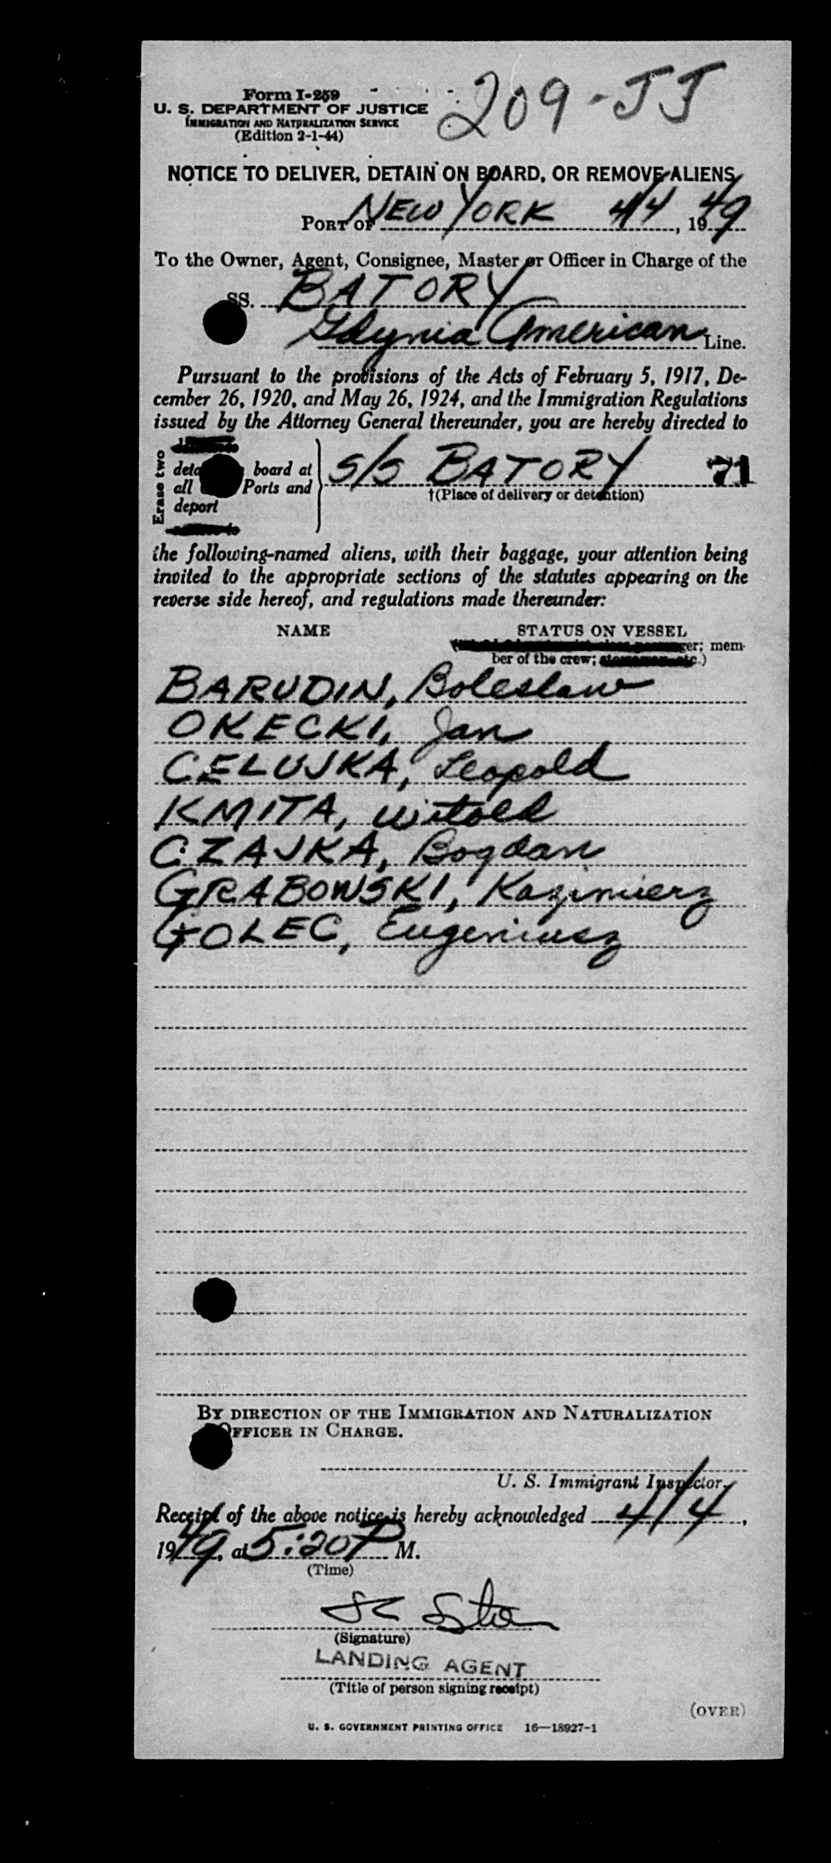 Form I-259
209-JJ
U. S. DEPARTMENT OF JUSTICE
IMMIGRATION AND NATURALIZATION SERVICE
(Edition 2-1-44)
NOTICE TO DELIVER, DETAIN ON BOARD, OR REMOVE ALIENS
PORT OF NEW YORK 4/4, 1949
To the Owner, Agent, Consignee, Master or Officer in Charge of the
SS. BATORY
Gdynia American Line.
Pursuant to the provisions of the Acts of February 5, 1917, De-
cember 26, 1920, and May 26, 1924, and the Immigration Regulations
issued by the Attorney General thereunder, you are hereby directed to
Erase two
board at S/S BATORY 71
all Ports and †(Place of delivery or detention)
deport
the following-named aliens, with their baggage, your attention being
invited to the appropriate sections of the statutes appearing on the
reverse side hereof, and regulations made thereunder:
NAME STATUS ON VESSEL
mem-
ber of the crew;
BARUDIN, Boleslaw
OKECKI, Jan
CELUJKA, Leopold
KMITA, Witold
CZAJKA, Bogdan
GRABOWSKI, Kazimierz
GOLEC, Eugeniusz
BY DIRECTION OF THE IMMIGRATION AND NATURALIZATION
OFFICER IN CHARGE.
U. S. Immigrant Inspector.
Receipt of the above notice is hereby acknowledged 4/4,
1949, at 5:20 P M.
(Time)
(Signature)
LANDING AGENT
(Title of person signing receipt)
(OVER)
U. S. GOVERNMENT PRINTING OFFICE 16—18927-1